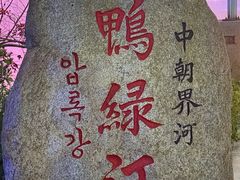 中朝界河
鴨緑江
압록강